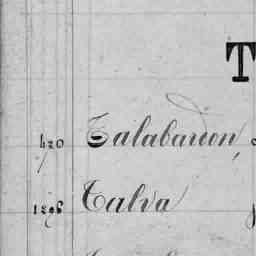 T
420 Talabardon,
1846 Talva